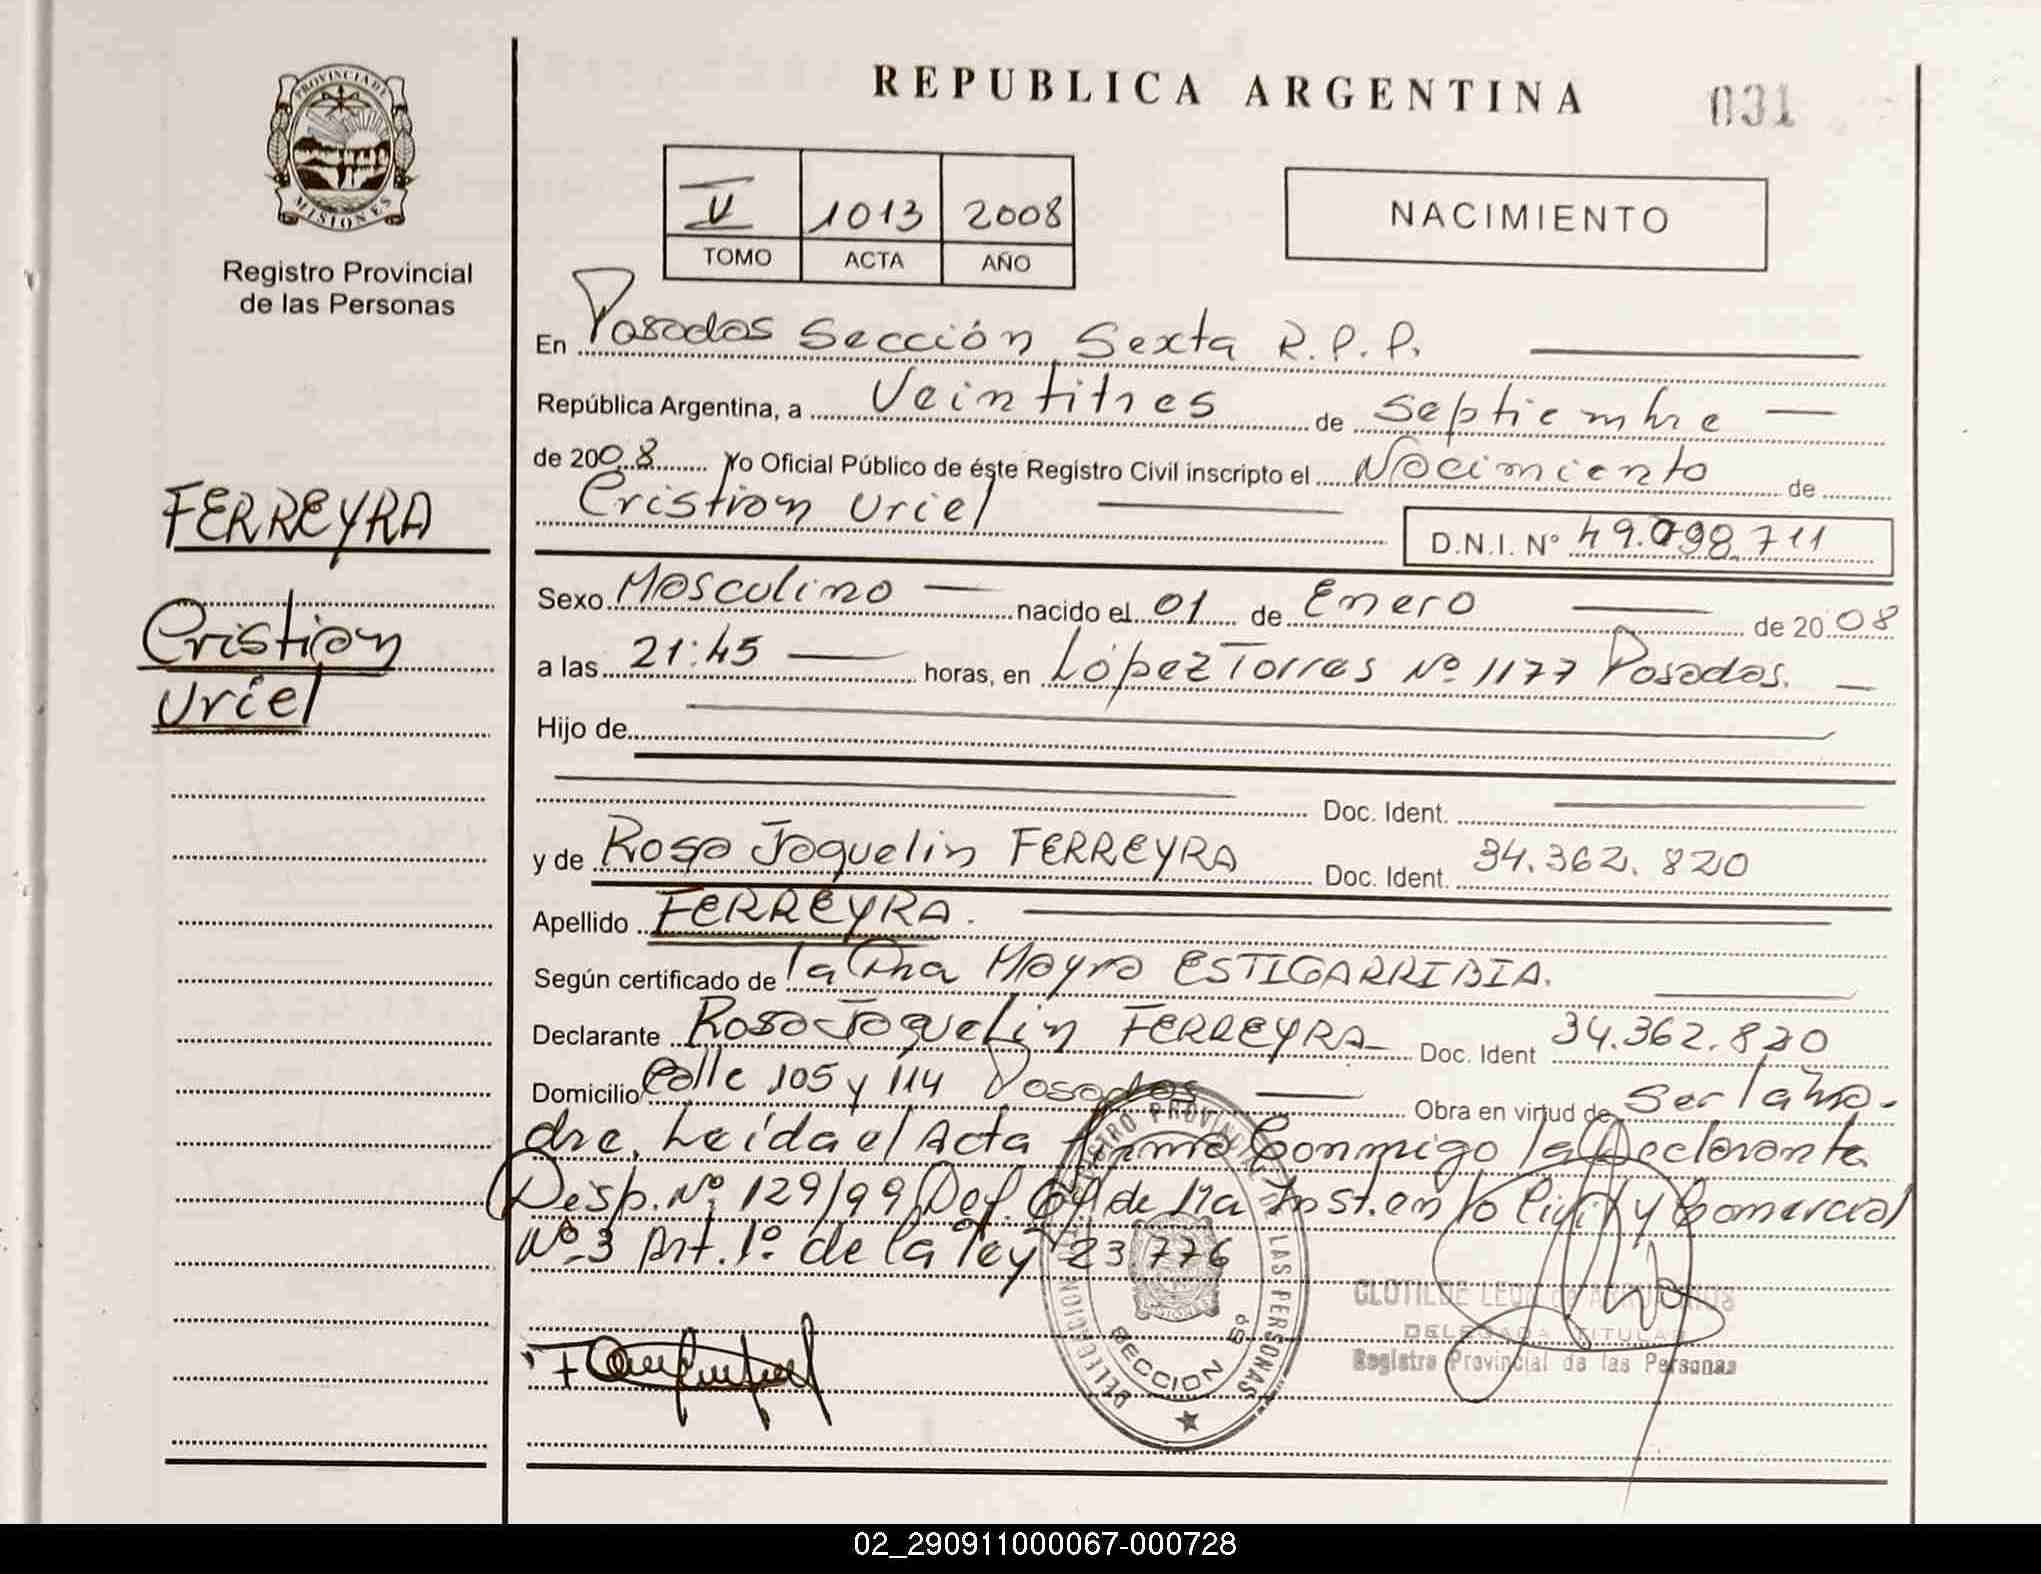 REPUBLICA ARGENTINA
031
PROVINCIA DE
MISIONES
Registro Provincial
de las Personas
V 1013 2008
TOMO ACTA AÑO
NACIMIENTO
En Posadas Sección Sexta R.P.P.
República Argentina, a Veintitres de Septiembre
de 2008 Yo Oficial Público de éste Registro Civil inscripto el Nacimiento de
Cristian Uriel
D.N.I. Nº 49.098.711
FERREYRA
Cristian
Uriel
Sexo Masculino nacido el 01 de Enero de 2008
a las 21:45 horas, en López Torres Nº 1177 Posadas.
Hijo de
Doc. Ident.
y de Rosa Jaquelin FERREYRA Doc. Ident. 34.362.820
Apellido FERREYRA.
Según certificado de la Dra Mayra ESTIGARRIBIA.
Declarante Rosa Jaquelin FERREYRA Doc. Ident 34.362.820
Domicilio Calle 105 y 114 Posadas Obra en virtud de Ser la ma-
dre. Leída el Acta firma Conmigo la Declarante
Desp. Nº 129/99 Def. Of. de 1ra Inst. en lo Civil y Comercial
Nº 3 Art. 1º de la ley 23776
REGISTRO PROVINCIAL DE LAS PERSONAS
DELEGACION
SECCION 6º
CLOTILDE LEON de
DELEGADA TITULAR
Registro Provincial de las Personas
02_290911000067-000728